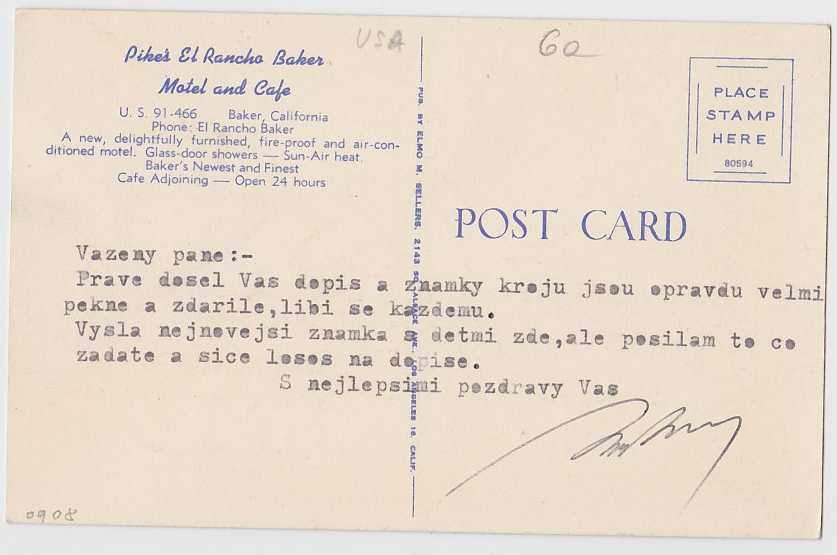 USA
60
Pike's El Rancho Baker
Motel and Cafe
U. S. 91-466 Baker, California
Phone: El Rancho Baker
A new, delightfully furnished, fire-proof and air-con-
ditioned motel. Glass-door showers — Sun-Air heat.
Baker's Newest and Finest
Cafe Adjoining — Open 24 hours
PUB. BY ELMO M. SELLERS, 2143 SO. ALSACE AVE., LOS ANGELES 16, CALIF.
PLACE
STAMP
HERE
80594
POST CARD
Vazeny pane:-
Prave dosel Vas dopis a znamky kroju jsou opravdu velmi
pekne a zdarile,libi se kazdemu.
Vysla nejnovejsi znamka s detmi zde,ale posilam to co
zadate a sice losos na dopise.
S nejlepsimi pozdravy Vas
0908